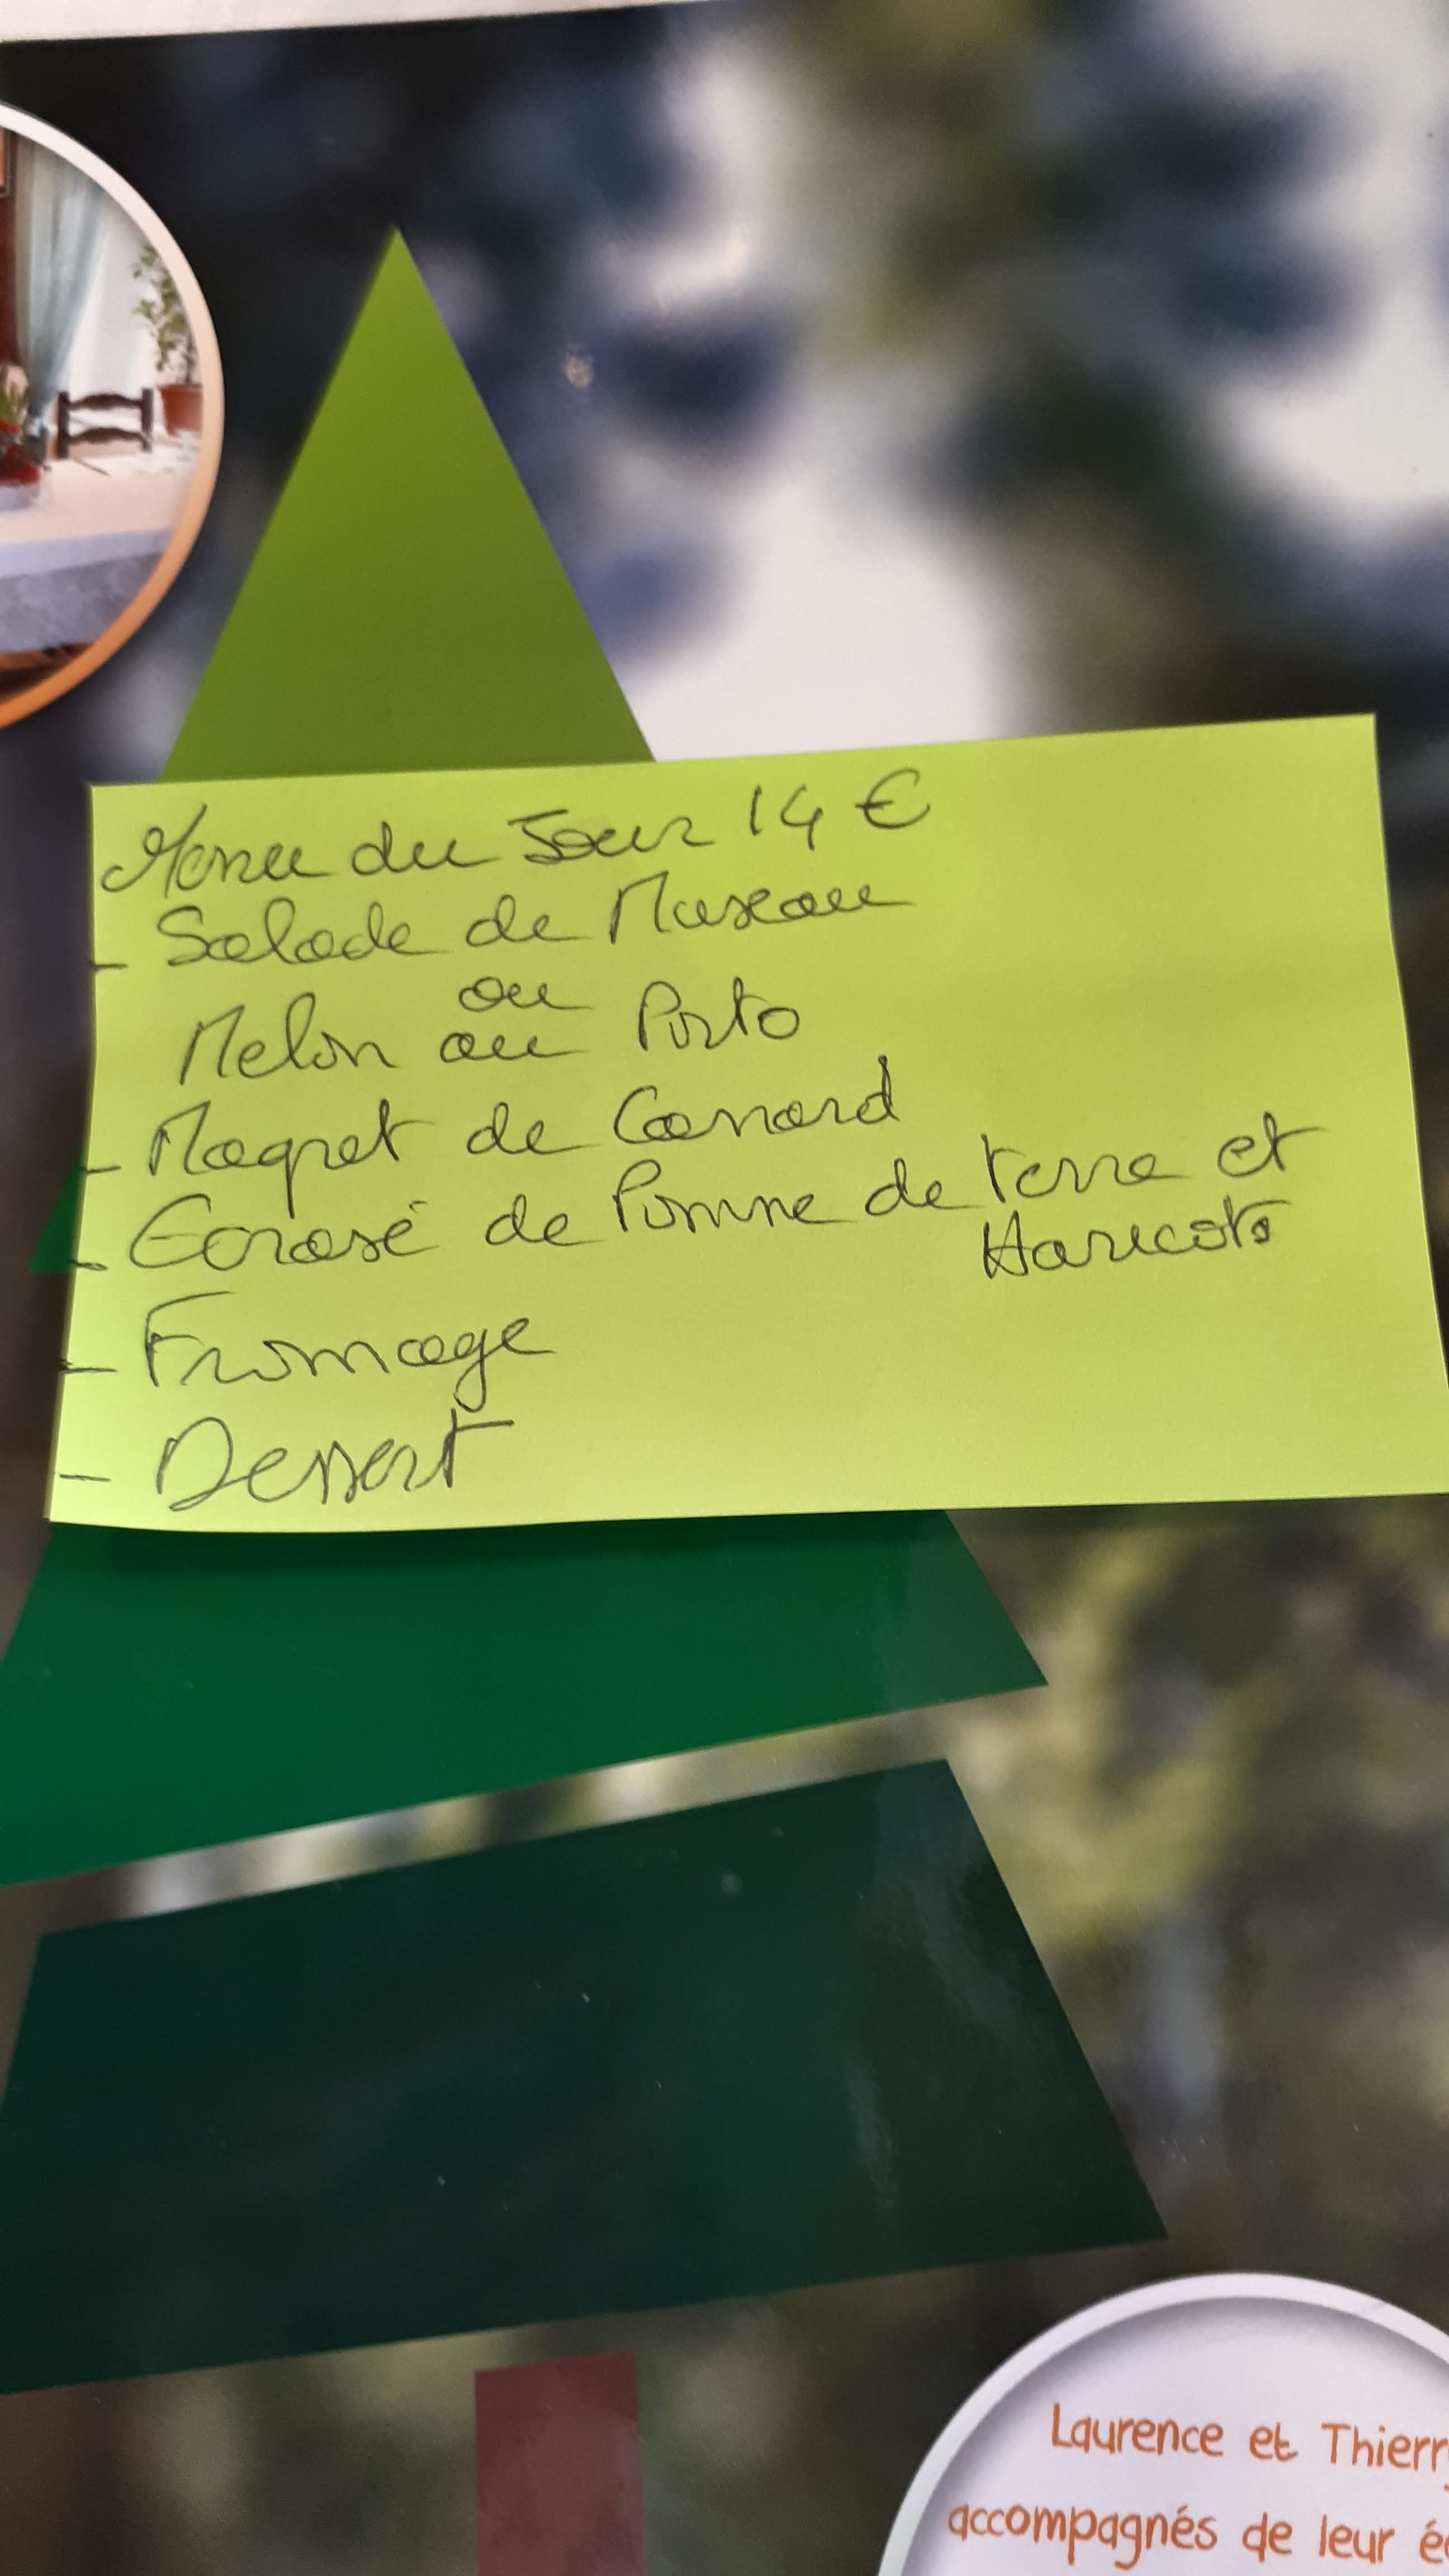 Menu du Jour 14 €
- Salade de Museau
ou
Melon au Porto
- Magret de Canard
- Ecrasé de Pomme de terre et
Haricots
- Fromage
- Dessert
Laurence et Thierry
accompagnés de leur é